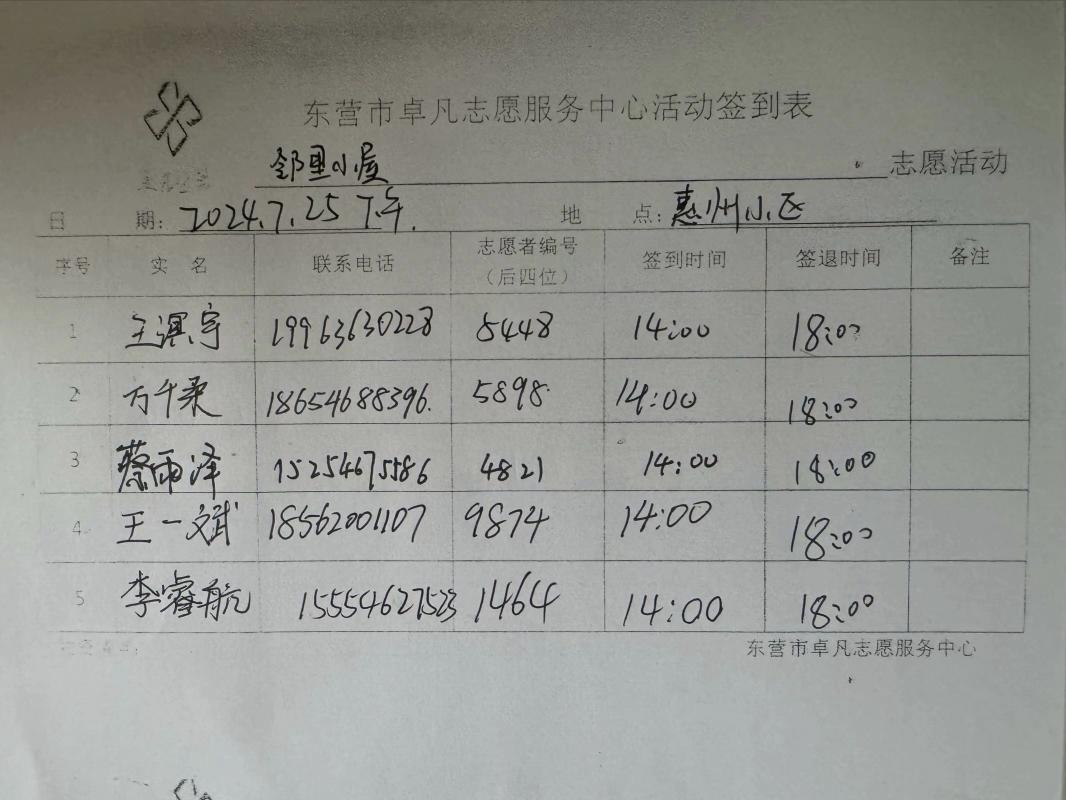 东营市卓凡志愿服务中心活动签到表
邻里小屋 志愿活动
日 期：2024.7.25 下午. 地 点：惠州小区
序号 实 名 联系电话 志愿者编号（后四位） 签到时间 签退时间 备注
1 王淇宇 19963630228 5448 14:00 18:00
2 万千柔 18654688396. 5898. 14:00 18:00
3 蔡雨泽 15254675586 4821 14:00 18:00
4 王一斌 18562001107 9874 14:00 18:00
5 李睿航 15554627523 1464 14:00 18:00
东营市卓凡志愿服务中心